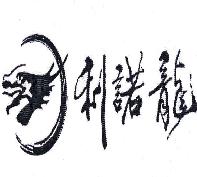 利諾龍